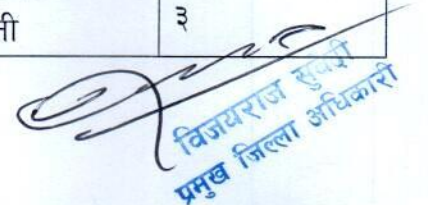 नी ३
विजयराज सुवेदी
प्रमुख जिल्ला अधिकारी